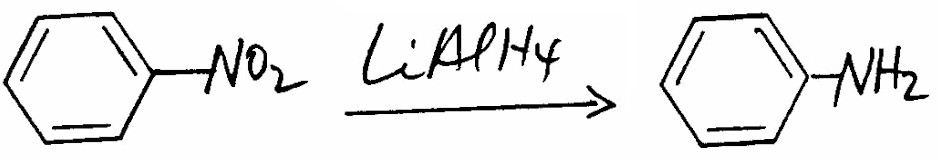 NO2 LiAlH4 NH2